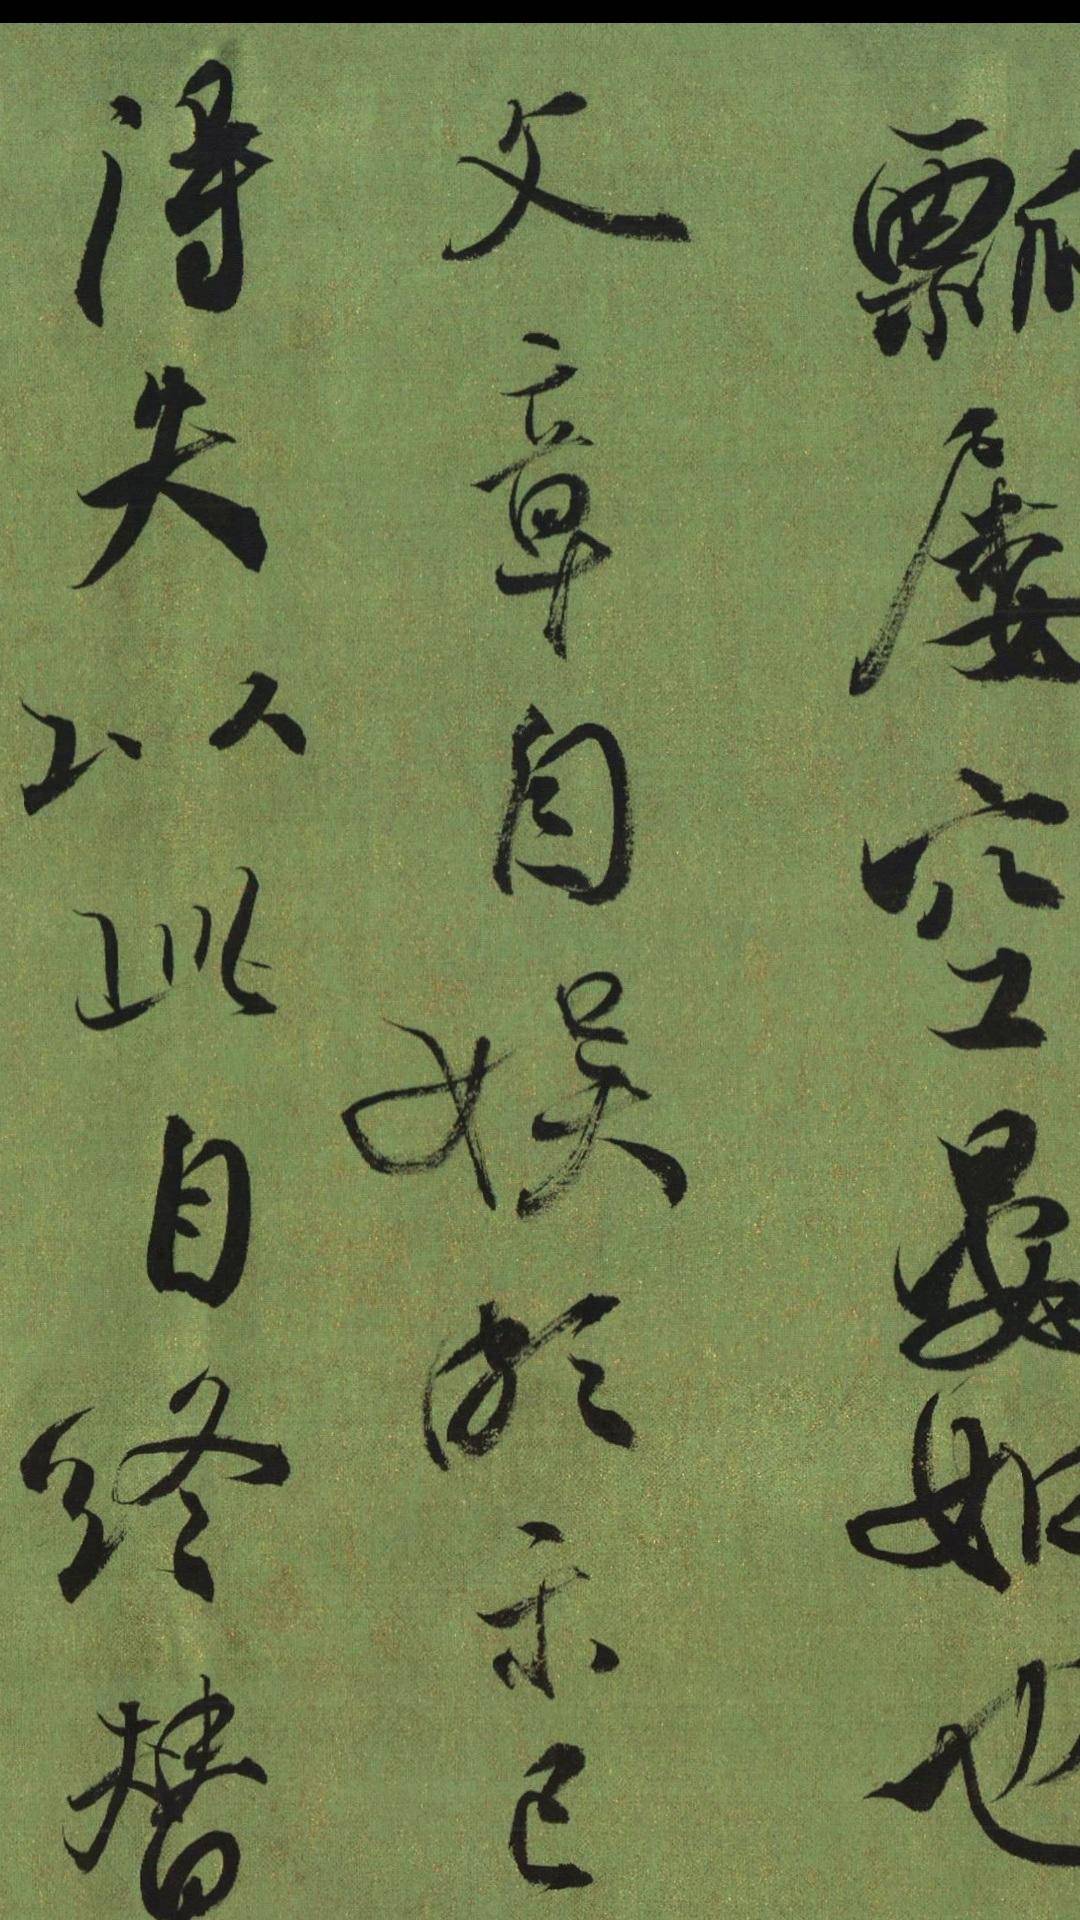 瓢屡空晏如也
文章自娱頗示己
得失以此自終賛